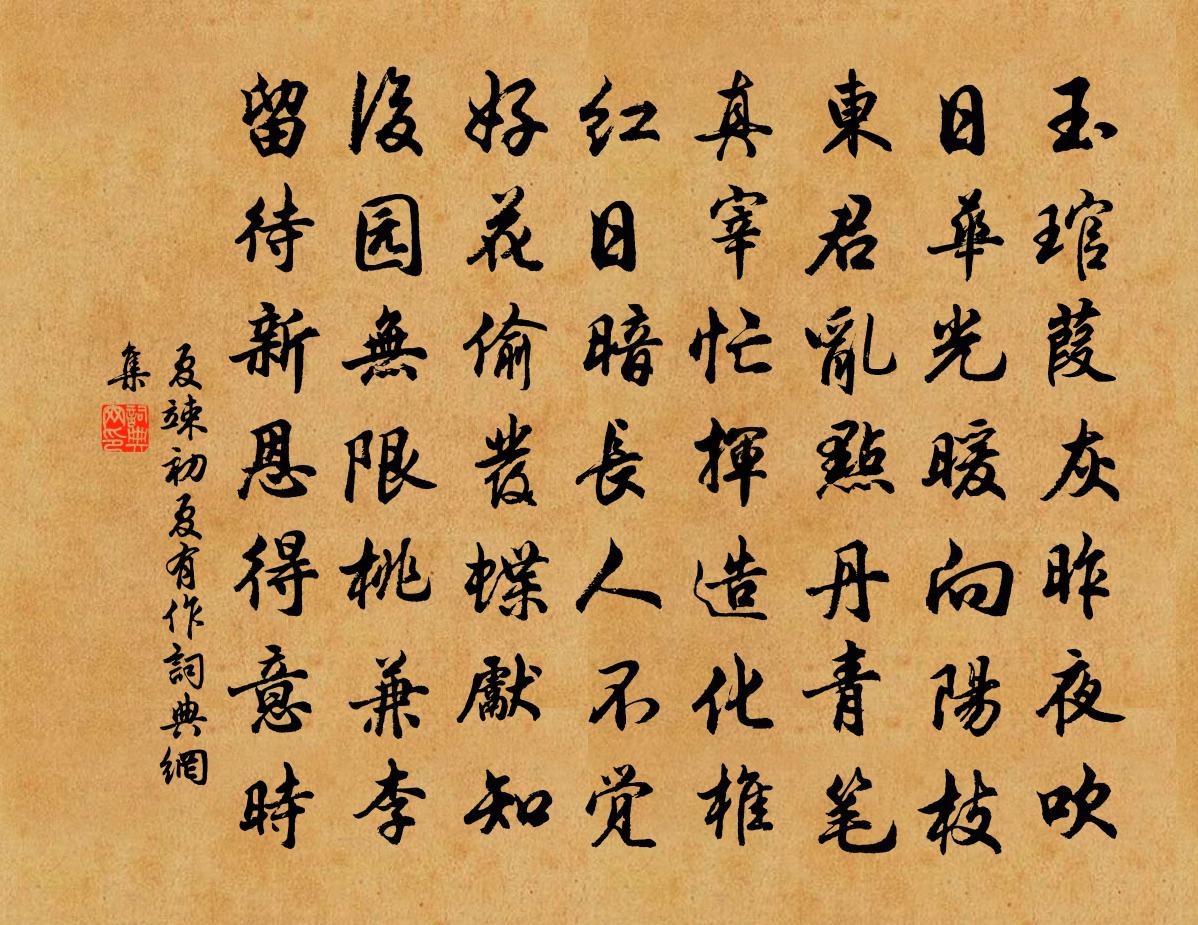 玉琯葭灰昨夜吹
日華光暖向陽枝
東君亂點丹青笔
真宰忙揮造化椎
红日暗長人不觉
好花偷發蝶獻知
後园無限桃兼李
留待新恩得意時
夏竦初夏有作詞典網
集
詞典網印